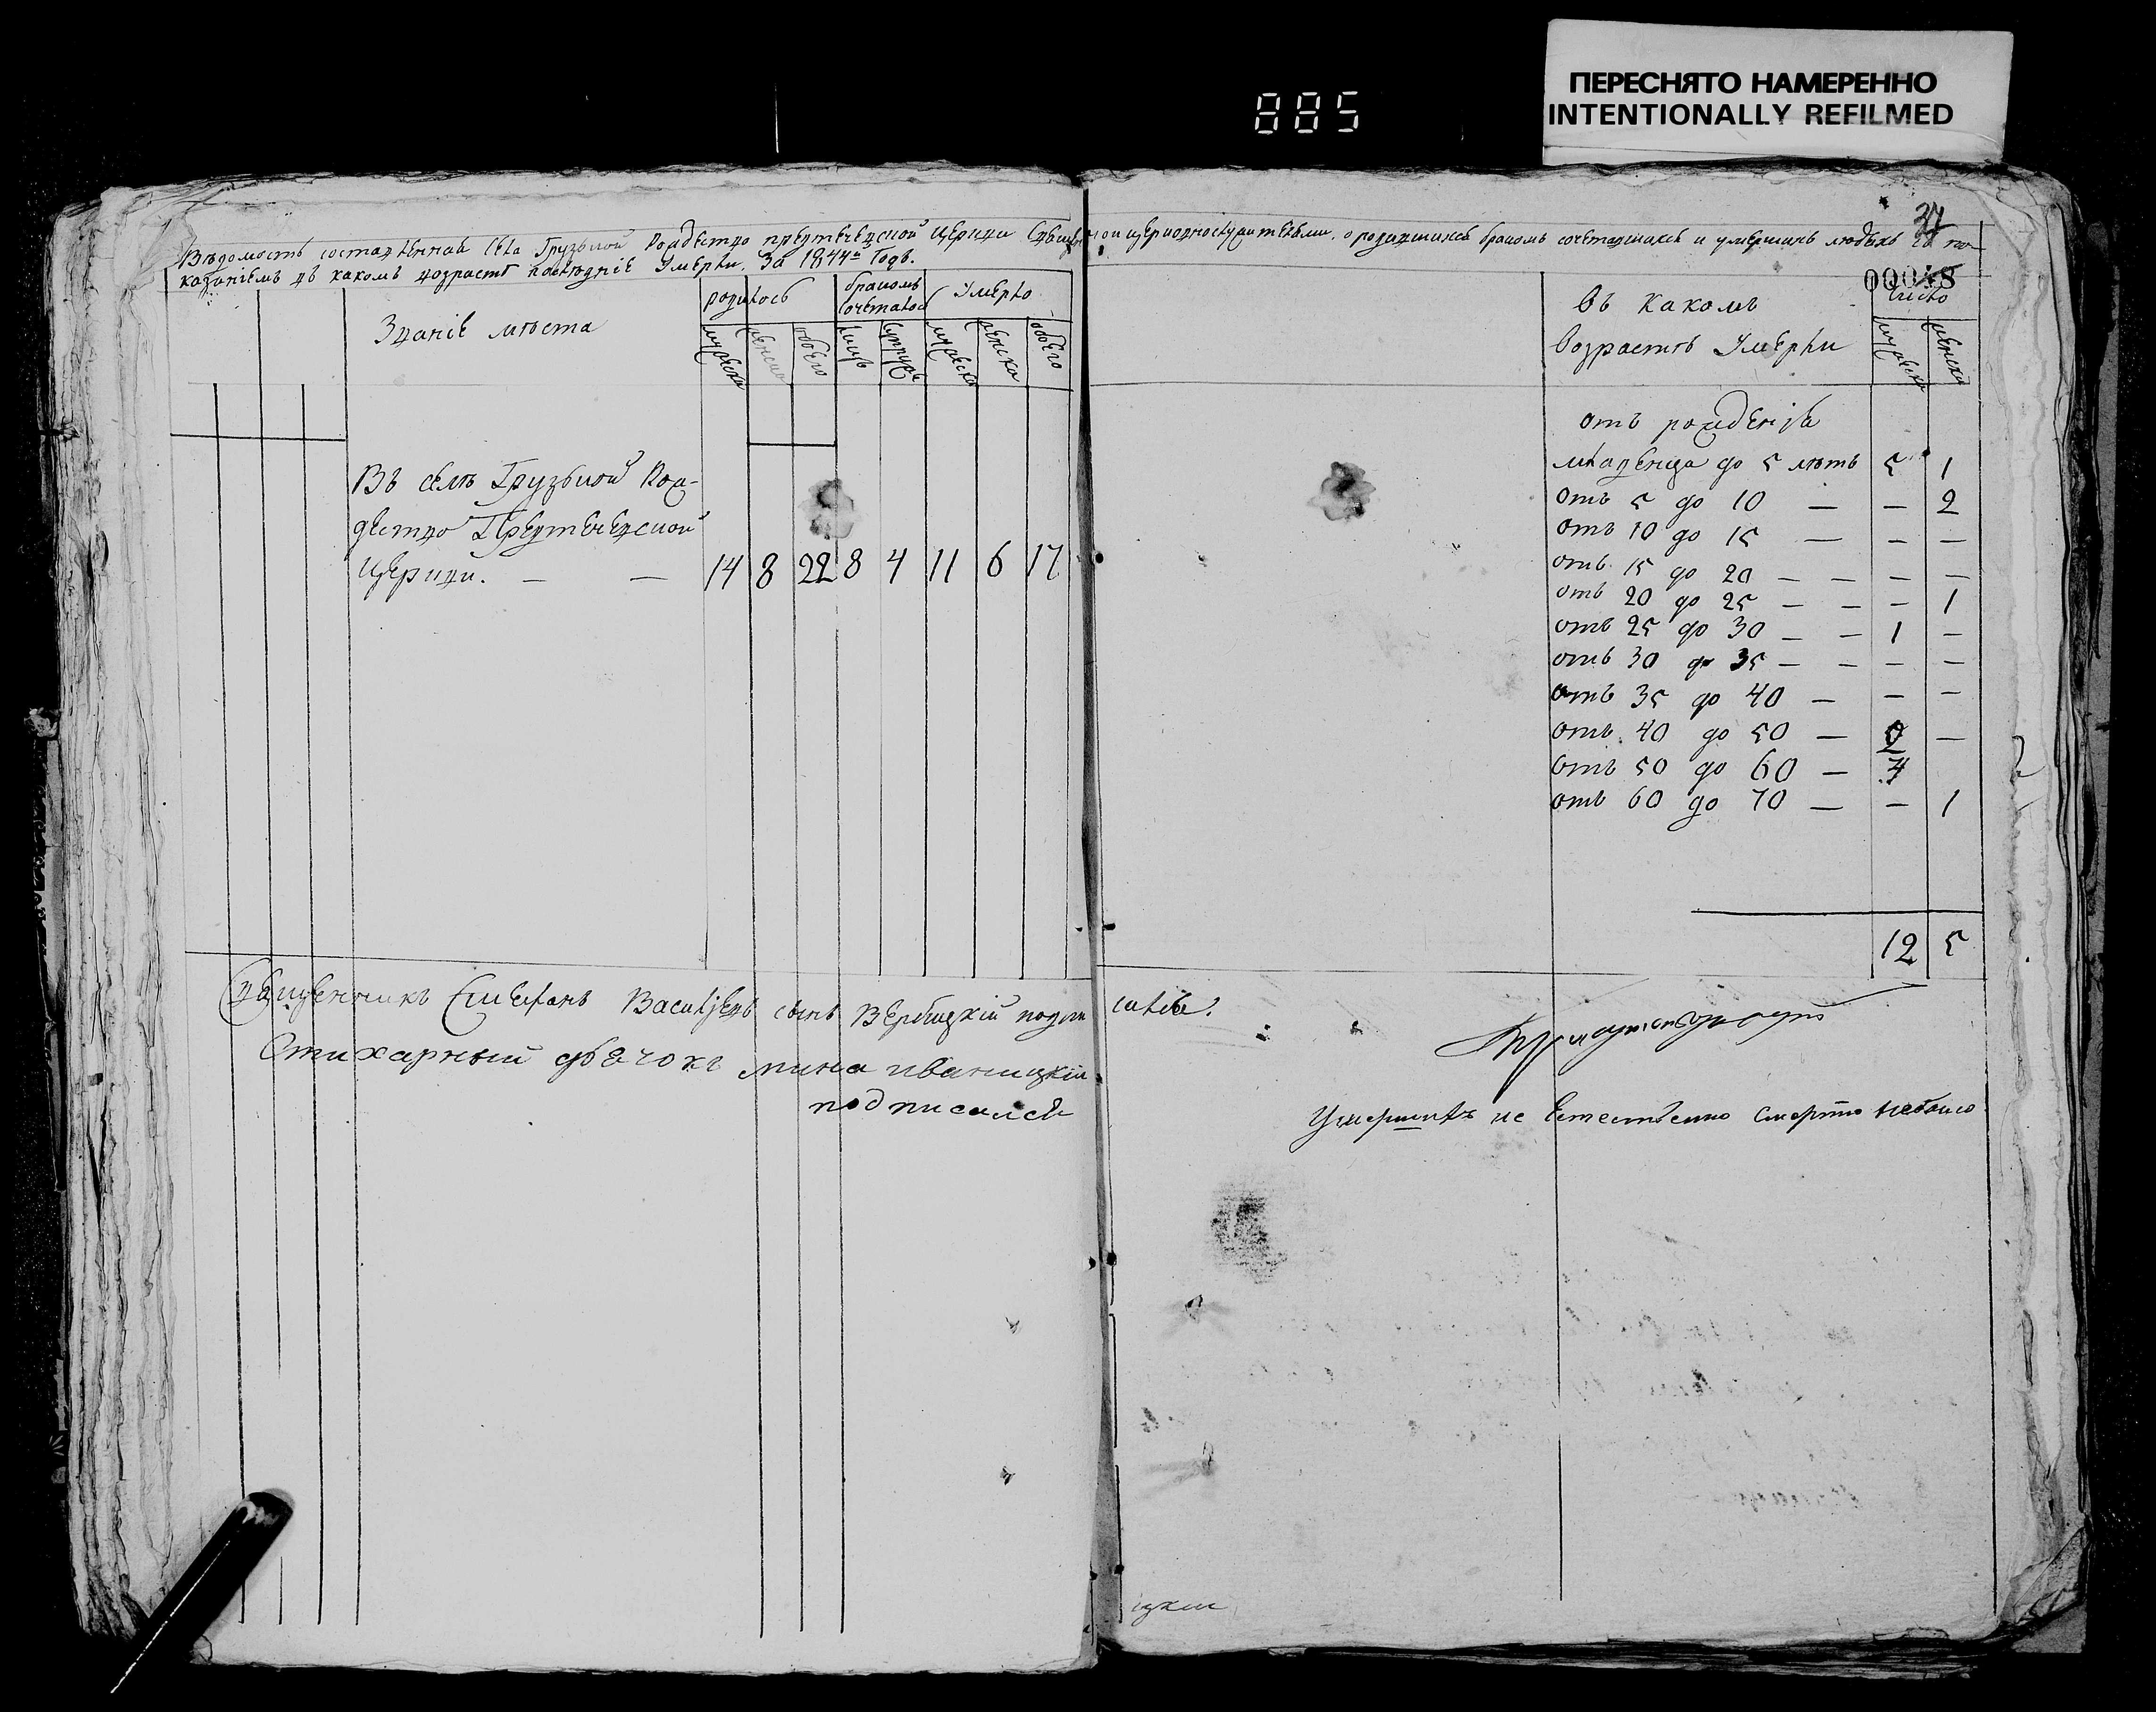 ПЕРЕСНЯТО НАМЕРЕННО
INTENTIONALLY REFILMED
885
37
00048
Вѣдомость составленная села Грузькой Рождество предтечевской церкви священно и церковнослужителями, о родившихся бракомъ сочетавшихся и умершихъ людяхъ съ по-
казаніемъ въ какомъ возрастѣ последніе Умерли. За 1844й Годъ.
Званіе мѣста
родилось
бракомъ сочеталос
Умерло
мужеска
женска
обоего
лицъ
супруж
мужеска
женска
обоего
Въ селѣ Грузькой Рож-
дество Предтечевской
церкви. — — 14 8 22 8 4 11 6 17
въ какомъ
возрастѣ Умерли
число
мужеска
женска
отъ рожденія
младенца до 5 лѣтъ 5 1
отъ 5 до 10 — — 2
отъ 10 до 15 — — —
отъ 15 до 20 — — — —
отъ 20 до 25 — — — 1
отъ 25 до 30 — — 1 —
отъ 30 до 35 — — — —
отъ 35 до 40 — — —
отъ 40 до 50 — —
отъ 50 до 60 — 4
отъ 60 до 70 — — 1
12 5
Священникъ Стефанъ Васильевъ сынъ Вербицкій подписался.
Стихарный дьячокъ мина иваницкій
подписался
Умершихъ не Естественно смертю небыло
цкии